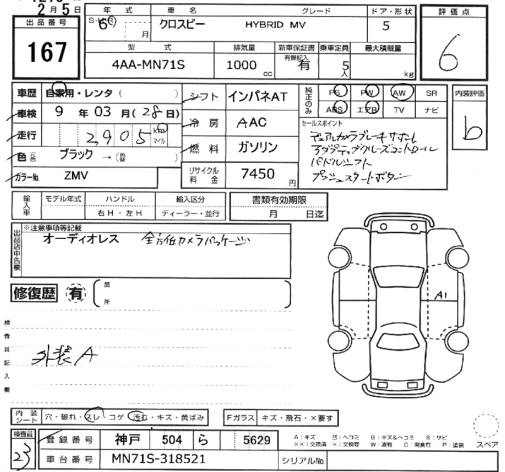 2月5日
出品番号
167
年式
車名
グレード
ドア・形状
評価点
6 年 月
クロスビー
HYBRID MV
5
6
型式
排気量
新車保証書
有無記入
乗車定員
最大積載量
4AA-MN71S
1000 cc
有
5人
kg
車歴 自家用・レンタ ( )
シフト
インパネAT
純正のみ
PS PW AW SR
ABS エアB TV ナビ
内装評価
b
車検 9 年 03 月 (28 日)
冷房
AAC
セールスポイント
デュアルカメラブレーキサポート
アダプティブクルーズコントロール
パドルシフト
プッシュスタートボタン
走行 2905 km マイル
燃料
ガソリン
色 ブラック →
カラーNo ZMV
リサイクル料金
7450円
輸入車
モデル年式
ハンドル
右H・左H
輸入区分
ディーラー・並行
書類有効期限
月 日迄
出品店申告欄
※注意事項等記載
オーディオレス 全方位カメラパッケージ
修復歴 有
箇所
A1
検査員記入欄
外装A
内装シート
穴・破れ・スレ・コゲ・汚む・キズ・黄ばみ
Fガラス キズ・飛石・×要す
検査員
23
登録番号
神戸 504 ら 5629
車台番号
MN71S-318521
シリアルNo.
A:キズ
P:塗装
スペア